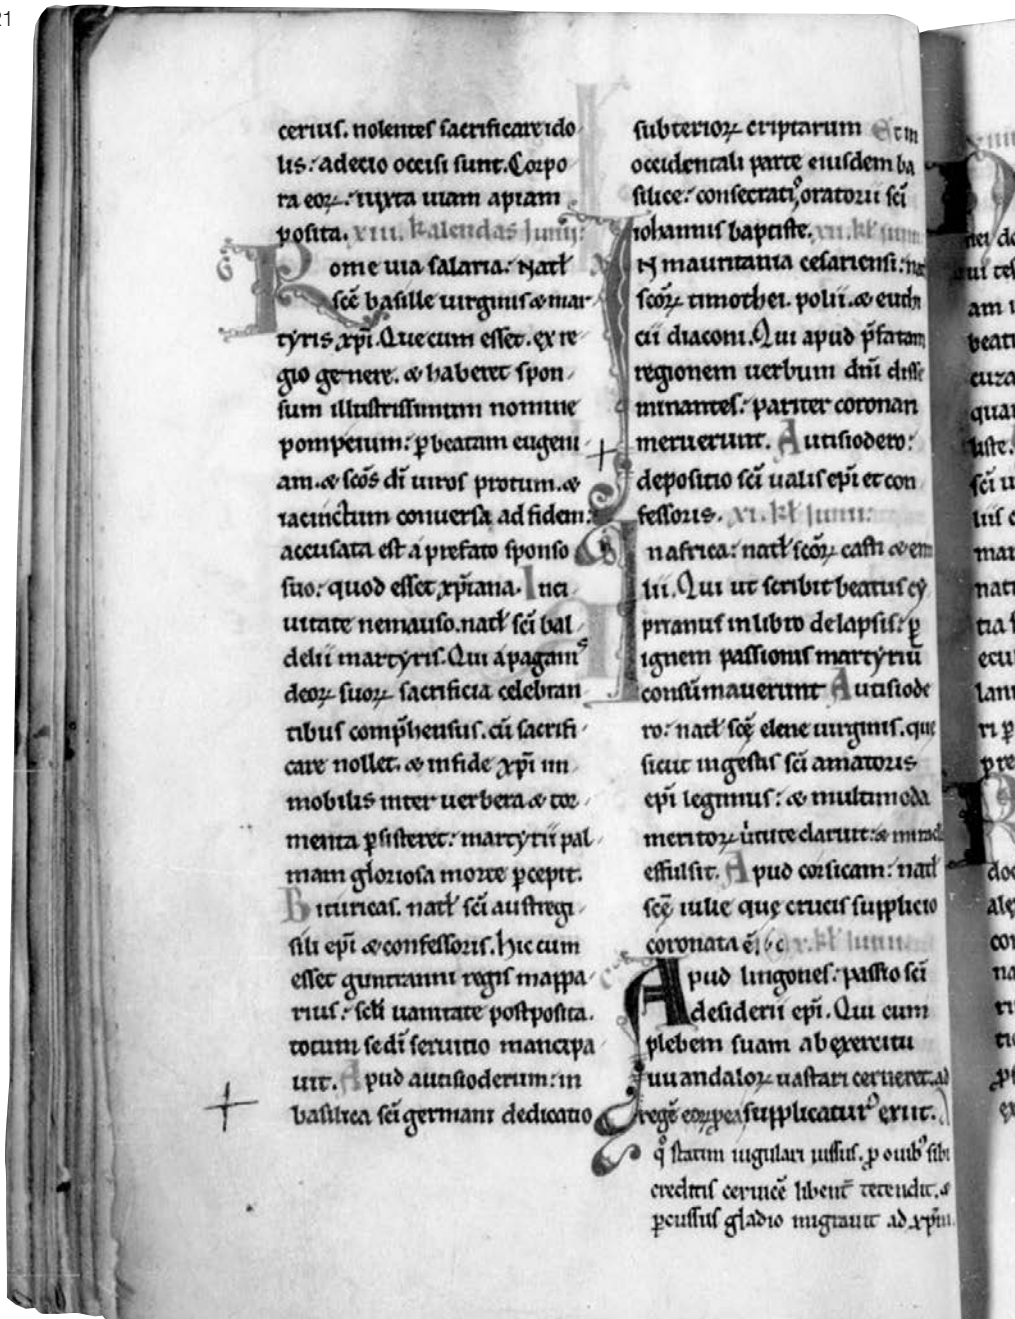 21
cerius. nolentes sacrificare ido
lis: a decio occisi sunt. Corpo
ra eoꝝ: iuxta uiam apiam
posita. xiii. kalendas Junij:
Rome uia salaria: Natł
scē basille uirginis & mar
tyris xp̄i. Que cum esset ex re
gio genere. & haberet spon
sum illustrissimum nomine
pompeium: ꝑ beatam eugeni
am. & scōs dī uiros protum. &
iacinctum conuersa ad fidem:
accusata est a prefato sponso
suo: quod esset xp̄iana. In ci
uitate nemauso. natł scī bal
delii martyris. Qui a paganis
deoꝝ suoꝝ sacrificia celebran
tibus comp̄hensus. cū sacrifi
care nollet. & in fide xp̄i in
mobilis inter uerbera & tor
menta ꝑsisteret: martyrii pal
mam gloriosa morte ꝑcepit.
Bituricas. natł scī austregi
sili ep̄i & confessoris. hic cum
esset guntranni regis mappa
rius: sclī uanitate postposita.
totum se dī seruitio mancipa
uit. Apud autisioderum: in
basilica scī germani dedicatio
subterioꝝ criptarum Et in
occidentali parte eiusdem ba
silice: consecratiꝰ oratorii scī
iohannis baptiste. xii. kł iunii
IN mauritania cesariensi: nat
scōꝝ timothei. polii. & euthi
cii diaconi. Qui apud p̄fatam
regionem uerbum dnī disse
minantes: pariter coronari
meruerunt. Autisiodero:
depositio scī ualis ep̄i et con
fessoris. xi. kł iunii:
In africa: natł scōꝝ casti & emi
lii. Qui ut scribit beatus cy
prianus in libro de lapsis: ꝑ
ignem passionis martyriū
consūmauerunt Autisiode
ro: natł scę̄ elene uirginis. que
sicut in gestis scī amatoris
ep̄i legimus: & multimoda
meritoꝝ uirtute claruit: & miraclis
effulsit. Apud corsicam: natł
scę̄ iulie quę crucis supplicio
coronata ē. x. kł iunii
Apud lingones: passio scī
desiderii ep̄i. Qui cum
plebem suam ab exercitu
uuandaloꝝ uastari cerneret. ad
regē eoꝝ ꝓ ea supplicaturꝰ exiit.
qͦ statim iugulari iussus. ꝓ ouibꝰ sibi
creditis ceruicē libent̄ tetendit. &
ꝑcussus gladio migrauit ad xp̄m.